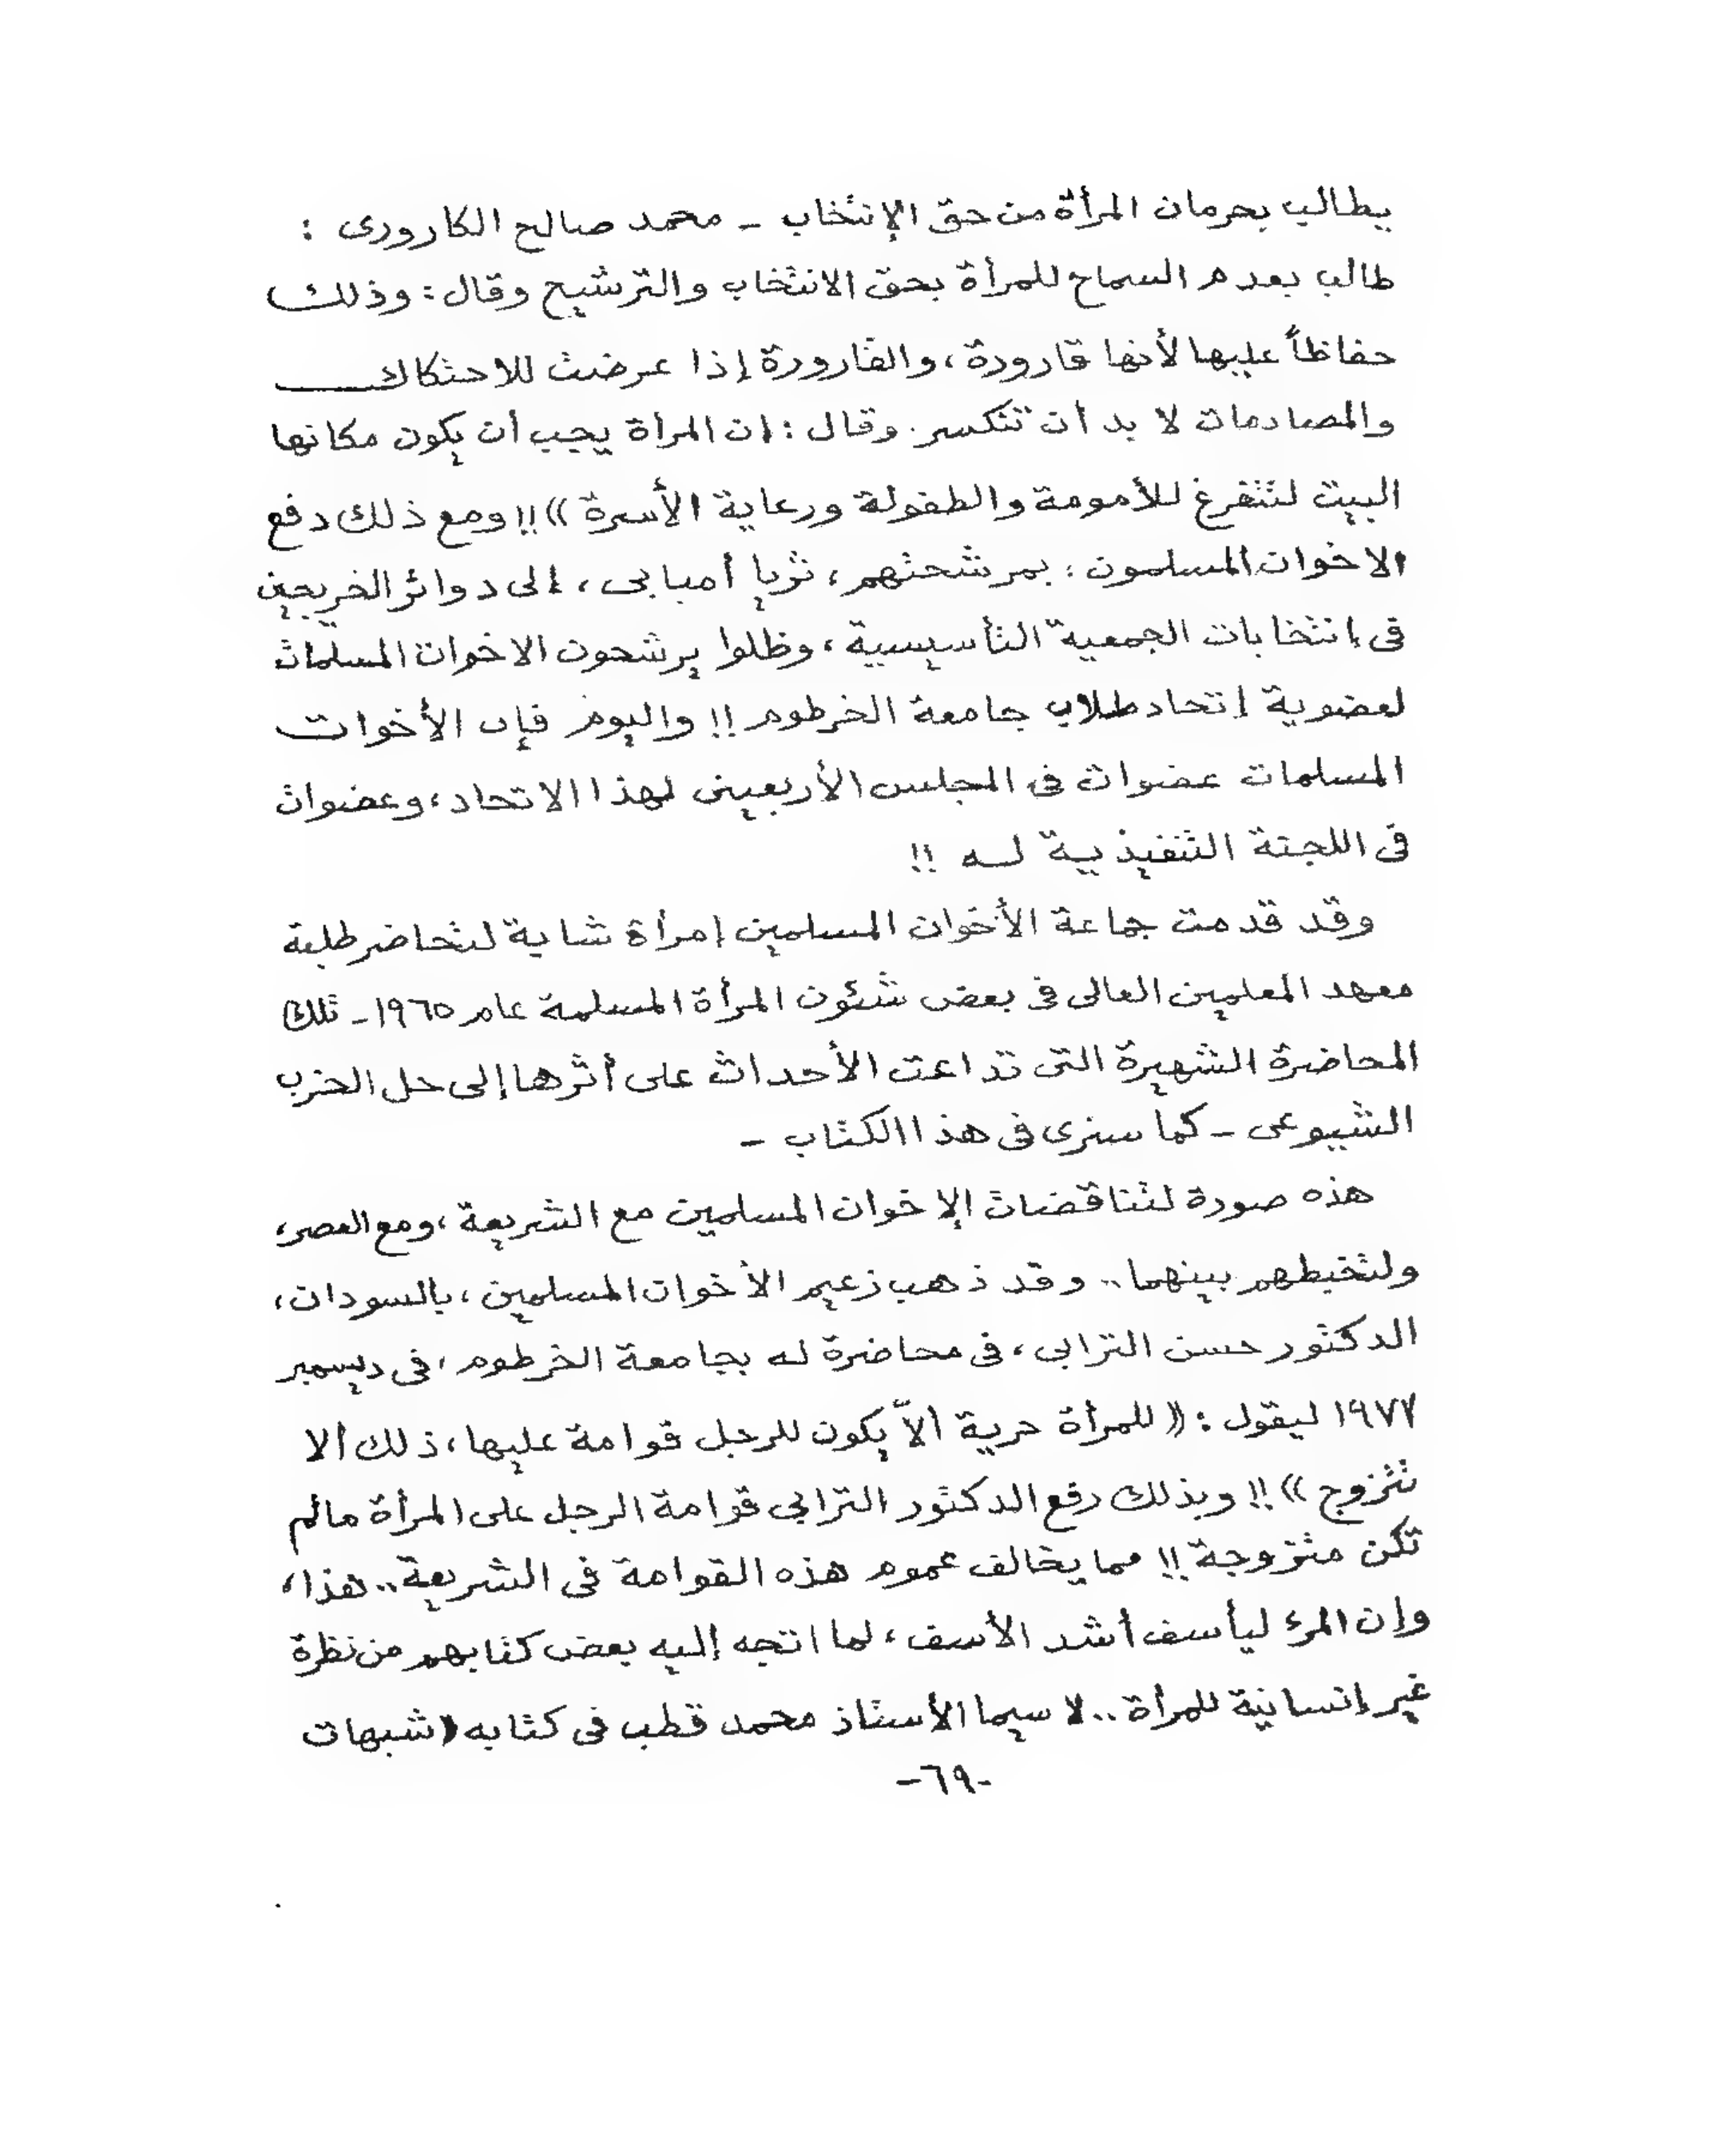 يطالب بحرمان المرأة من حق الإنتخاب - محمد صالح الكارورى :
طالب بعدم السماح للمرأة بحق الانتخاب والترشيح وقال : وذلك
حفاظاً عليها لأنها قارورة ، والقارورة إذا عرضت للاحتكاك
والمصادمات لا بد أن تنكسر . وقال : إن المرأة يجب أن يكون مكانها
البيت لتتفرغ للأمومة والطفولة ورعاية الأسرة )) !! ومع ذلك دفع
الاخوان المسلمون ، بمرشحتهم ، ثريا أمبابى ، إلى دوائر الخريجين
فى إنتخابات الجمعية التأسيسية ، وظلوا يرشحون الاخوات المسلمات
لعضوية إتحاد طلاب جامعة الخرطوم !! واليوم فإن الأخوات
المسلمات عضوات فى المجلس الأربعينى لهذا الاتحاد ، وعضوات
فى اللجنة التنفيذية له !!
وقد قدمت جماعة الأخوان المسلمين إمرأة شابة لتحاضر طلبة
معهد المعلمين العالى فى بعض شئون المرأة المسلمة عام ١٩٦٥ - تلك
المحاضرة الشهيرة التى تداعت الأحداث على أثرها إلى حل الحزب
الشيوعى - كما سنرى فى هذا الكتاب -
هذه صورة لتناقضات الإخوان المسلمين مع الشريعة ، ومع العصر ،
ولتخبطهم بينهما .. وقد ذهب زعيم الأخوان المسلمين ، بالسودان ،
الدكتور حسن الترابى ، فى محاضرة له بجامعة الخرطوم ، فى ديسمبر
١٩٧٧ ليقول : (( للمرأة حرية ألاّ يكون للرجل قوامة عليها ، ذلك ألا
تتزوج )) !! وبذلك رفع الدكتور الترابى قوامة الرجل على المرأة مالم
تكن متزوجة !! مما يخالف عموم هذه القوامة فى الشريعة .. هذا ،
وإن المرء ليأسف أشد الأسف ، لما اتجه إليه بعض كتابهم من نظرة
غير إنسانية للمرأة .. لا سيما الأستاذ محمد قطب فى كتابه ( شبهات
-٦٩-